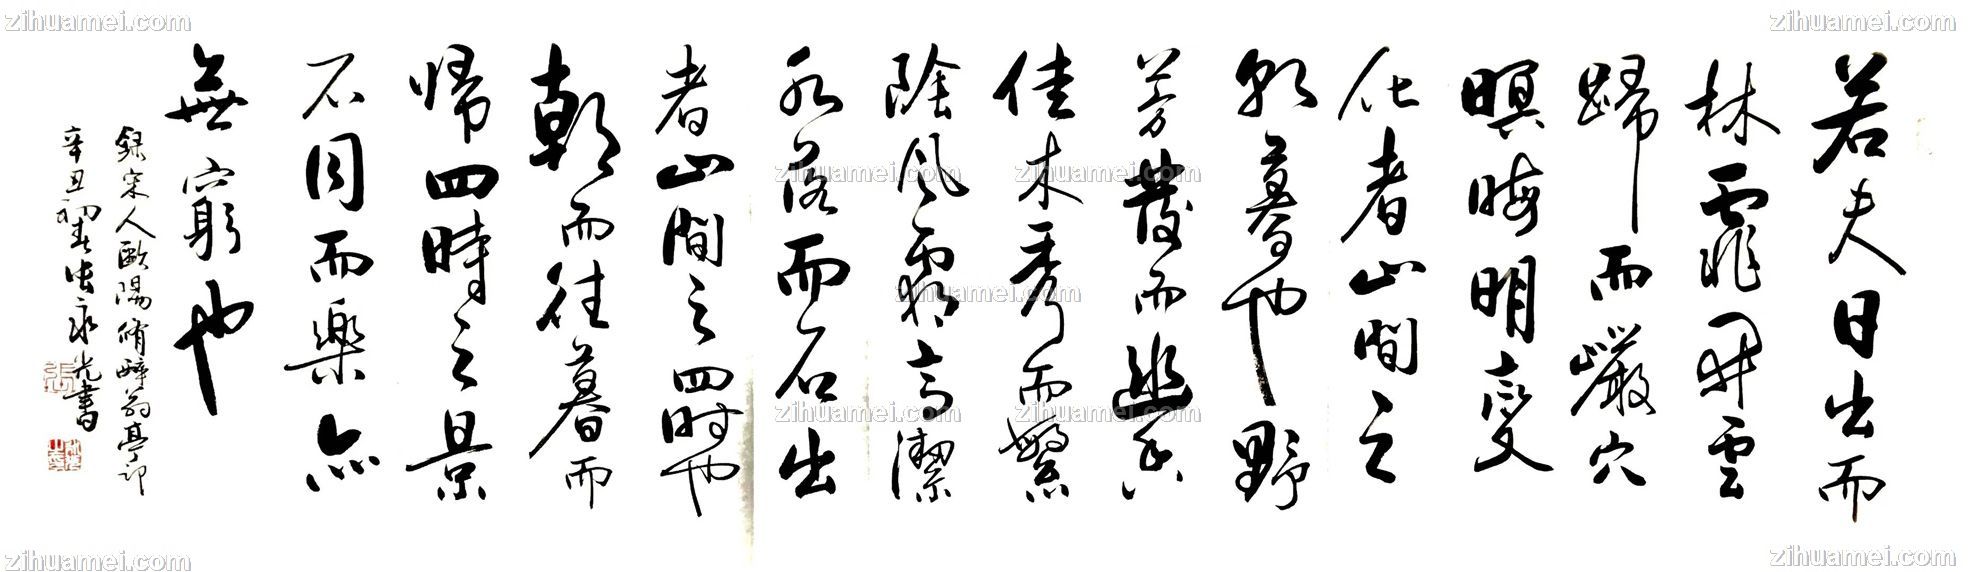 zihuamei.com
zihuamei.com
若夫日出而
林霏開雲
歸而巖穴
暝晦明變
化者山間之
朝暮也野
芳發而幽香
佳木秀而繁
陰風霜高潔
水落而石出
者山間之四时也
朝而往暮而
帰四時之景
不同而樂亦
無窮也
錄宋人歐陽脩醉翁亭記
辛丑初春张永光書
張
zihuamei.com
zihuamei.com
zihuamei.com
zihuamei.com
zihuamei.com
zihuamei.com
zihuamei.com